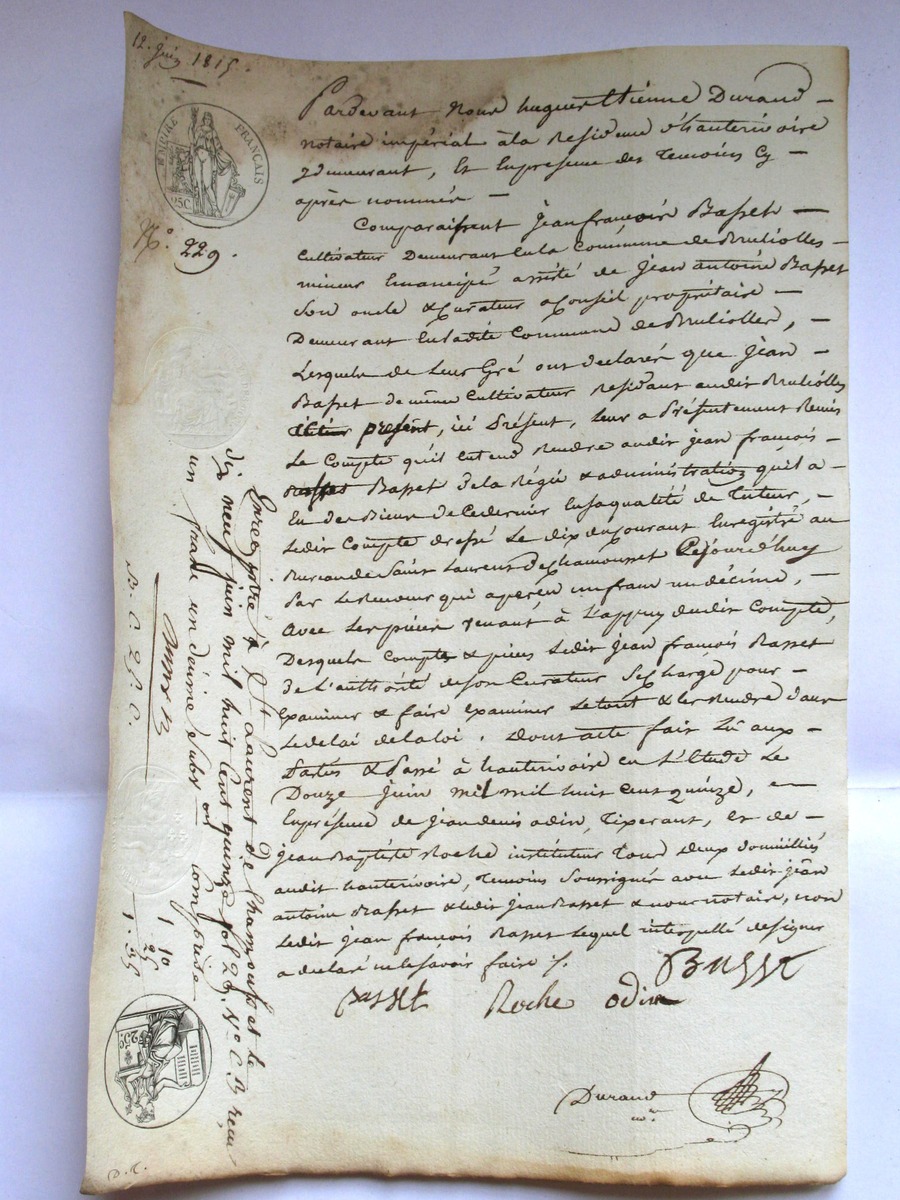 12. juin 1815.
EMPIRE FRANÇAIS
25C.
N.º 229.
Pardevant Nous hugues Etienne Durand –
notaire impérial à la Residence d'hauterivoire
y demeurant, Et En présence des Temoins Cy –
après nommés –
Comparaissent jean françois Basset –
Cultivateur Demeurant En la Commune de Brulliolles –
mineur Emancipé assisté de jean antoine Basset
Son oncle & Curateur a Conseil propriétaire –
Demeurant En ladite Commune de Brulliolles, –
Lesquels de Leur Gré ont declaré que jean –
Basset de même Cultivateur Residant audit Brulliolles
présent, ici Présent, leur a Présentement Remis
Le Compte qu'il entend Rendre audit jean françois –
Basset de la Régie & administration qu'il a –
Eu des Biens de Ce dernier En sa qualité de Tuteur, –
Ledit Compte dressé Le dix du Courant Enregistré au
Bureau de Saint Laurent de Chamousset Cejourd'huy
Par Le Receveur qui a perçu un franc un décime, –
avec Les pièces venant à L'appuy dudit Compte,
Desquels Compte & pièces Ledit jean françois Basset
De L'authorité de son Curateur Se charge pour –
Examiner & faire Examiner Le tout & les Rendre dans
Le delai de la loi. Dont acte fait Lû aux –
Parties & Passé à hauterivoire en L'Etude Le
Douze juin mil mil huit Cent quinze, en
En présence de jean denis odin, Tixerant, Et de –
jean Baptiste Roche instituteur Tous Deux domiciliés
audit hauterivoire, Temoins Soussignés avec Ledit jean
antoine Basset & ledit jean Basset & nous notaire, non
Ledit jean françois Basset Lequel interpellé de signer
a declaré ne le Savoir faire ./.
Basset
Basset Roche odin
Durand
nre
Enregistré à St Laurent de Chamousset le
dix neuf juin mil huit Cent quinze fol. 24. Vo C. 3 reçu
un franc un décime Subvon Comprise
1 10
25
1. 35
25C.
D. R.